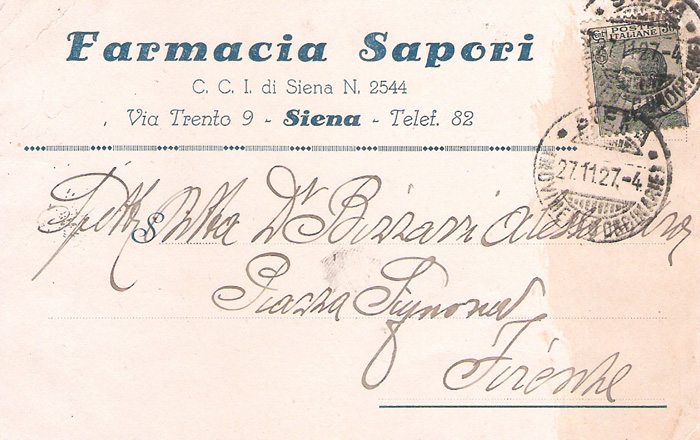 Farmacia Sapori
C. C. I. di Siena N. 2544
Via Trento 9 - Siena - Telef. 82
POSTE
ITALIANE
27.11.27.-4
27.11.27.-4
Spett. Ditta Dr Bizzarri Alessandro
Piazza Signoria
Firenze